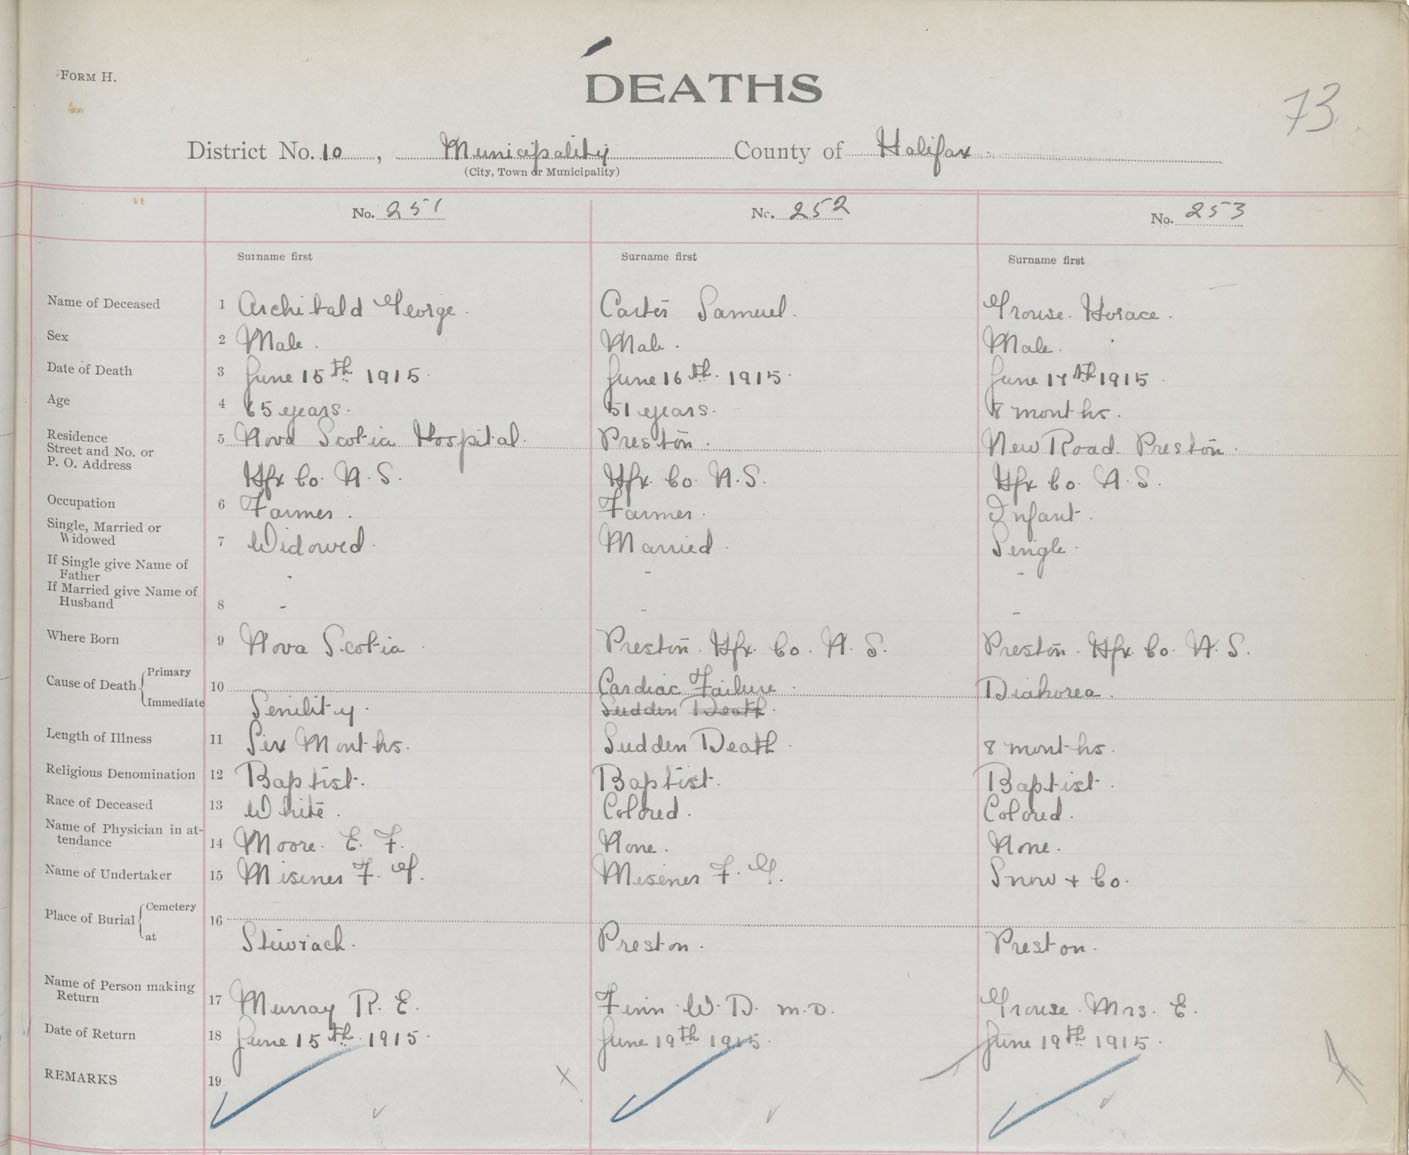 FORM H.
DEATHS
73
District No. 10, Municipality County of Halifax
(City, Town or Municipality)
No. 251 No. 252 No. 253
Surname first Surname first Surname first
Name of Deceased 1 Archibald George. Carter Samuel. Grouse. Horace.
Sex 2 Male. Male. Male.
Date of Death 3 June 15th 1915. June 16th. 1915. June 17th 1915.
Age 4 65 years. 51 years. 8 months.
Residence
Street and No. or
P. O. Address 5 Nova Scotia Hospital. Preston. New Road. Preston.
Hfx Co. N. S. Hfx. Co. N. S. Hfx Co. N. S.
Occupation 6 Farmer. Farmer. Infant.
Single, Married or
Widowed 7 Widowed. Married. Single.
If Single give Name of
Father - - -
If Married give Name of
Husband 8 - - -
Where Born 9 Nova Scotia Preston. Hfx. Co. N. S. Preston. Hfx. Co. N. S.
Cause of Death Primary 10 Cardiac Failure. Diahorea.
Immediate Senility. Sudden Death.
Length of Illness 11 Six Months. Sudden Death. 8 months.
Religious Denomination 12 Baptist. Baptist. Baptist.
Race of Deceased 13 White. Colored. Colored.
Name of Physician in at-
tendance 14 Moore. E. F. None. None.
Name of Undertaker 15 Misener F. G. Misener F. G. Snow + Co.
Place of Burial Cemetery 16
at Preston. Preston.
Name of Person making
Return 17 Murray R. E. Finn W. D. M.D. Grouse. Mrs. E.
Date of Return 18 June 15th. 1915. June 19th 1915. June 19th 1915.
REMARKS 19